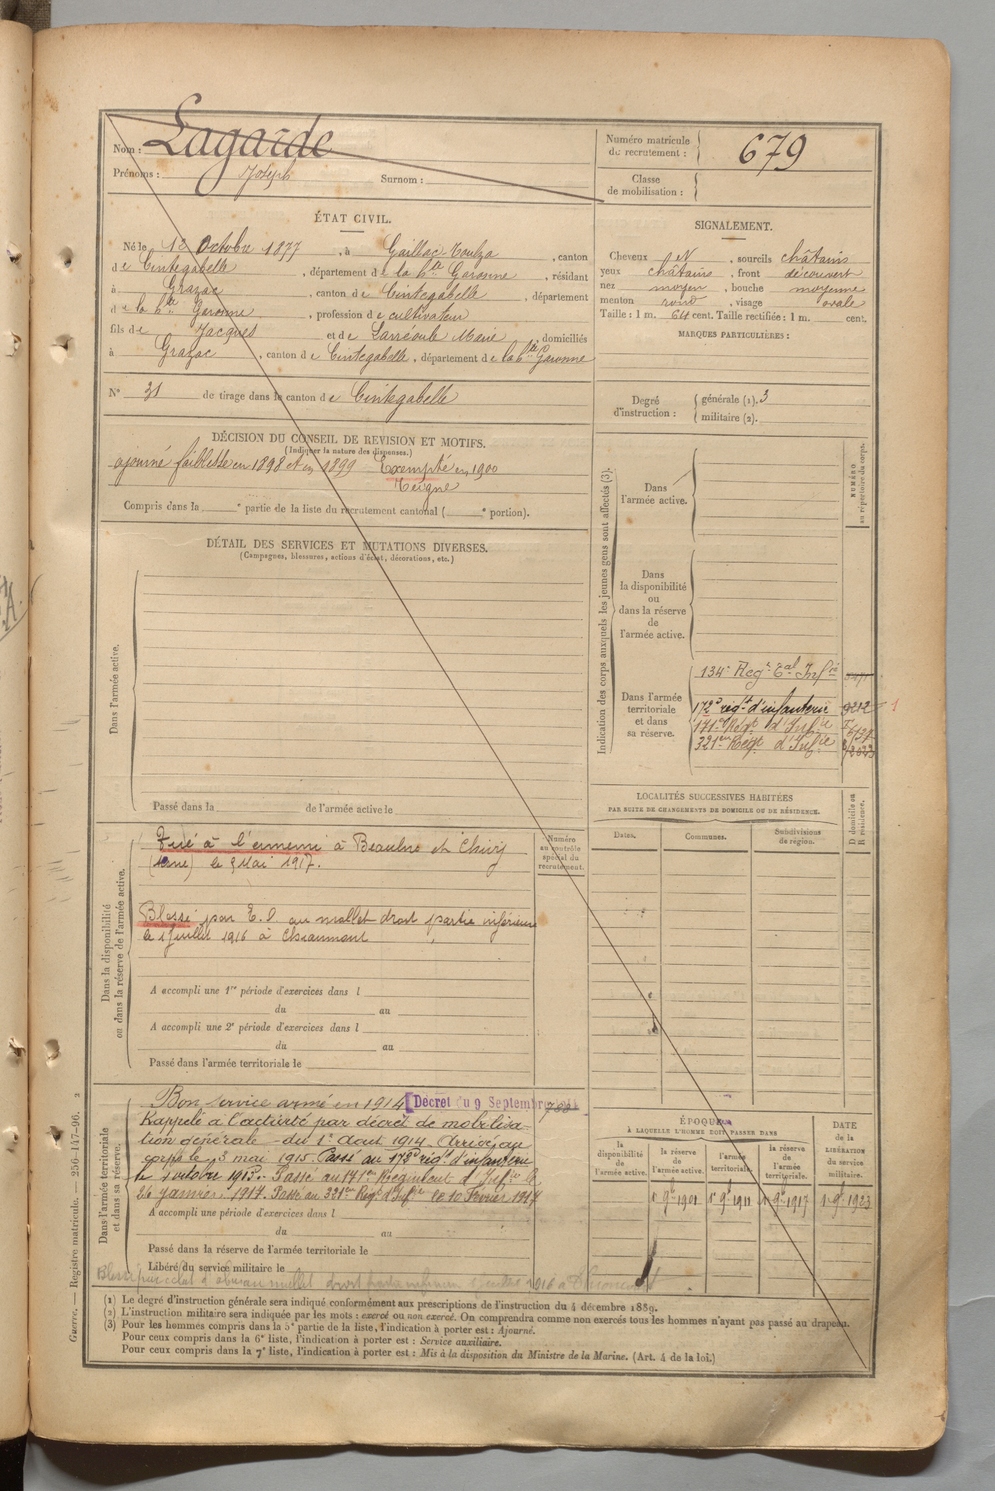 Nom : Lagarde
Prénoms : Joseph Surnom :
Numéro matricule du recrutement : 679
Classe de mobilisation :
ÉTAT CIVIL.
Né le 12 Octobre 1877, à Gaillac Toulza, canton
de Cintegabelle, département de la hte Garonne, résidant
à Grazac, canton de Cintegabelle, département
de la hte Garonne, profession de cultivateur
fils de Jacques et de Larréoule Marie, domiciliés
à Grazac, canton de Cintegabelle, département de la hte Garonne
N° 31 de tirage dans le canton de Cintegabelle
SIGNALEMENT.
Cheveux et, sourcils châtains
yeux châtains, front découvert
nez moyen, bouche moyenne
menton rond, visage ovale
Taille : 1 m. 64 cent. Taille rectifiée : 1 m. cent.
MARQUES PARTICULIÈRES :
Degré d'instruction : générale (1). 3
militaire (2).
DÉCISION DU CONSEIL DE REVISION ET MOTIFS.
(Indiquer la nature des dispenses.)
ajourné faiblesse en 1898 et en 1899 Exempté en 1900
Teigne
Compris dans la e partie de la liste du recrutement cantonal ( e portion).
DÉTAIL DES SERVICES ET MUTATIONS DIVERSES.
(Campagnes, blessures, actions d'éclat, décorations, etc.)
Dans l'armée active.
Passé dans la de l'armée active le
Indication des corps auxquels les jeunes gens sont affectés (3).
NUMÉRO au répertoire du corps.
Dans l'armée active.
Dans la disponibilité ou dans la réserve de l'armée active.
Dans l'armée territoriale et dans sa réserve.
134e Regt Tal Infie
172e régt d'infanterie 9212 1
171e Régt d'Infie
321e Régt d'Infie
LOCALITÉS SUCCESSIVES HABITÉES
PAR SUITE DE CHANGEMENTS DE DOMICILE OU DE RÉSIDENCE.
Dates. Communes. Subdivisions de région.
D domicile ou R résidence.
Dans la disponibilité ou dans la réserve de l'armée active.
Numéro au contrôle spécial du recrutement.
Tué à l'ennemi à Beaulne et Chivy
(Aisne) le 9 Mai 1917.
Blessé par E. O au mollet droit partie inférieure
le 1 Juillet 1916 à
A accompli une 1re période d'exercices dans l
du au
A accompli une 2e période d'exercices dans l
du au
Passé dans l'armée territoriale le
Dans l'armée territoriale et dans sa réserve.
Bon service armé en 1914 [Décret du 9 Septembre 1914
Rappelé à l'activité par décret de mobilisa-
tion générale du 1er Aout 1914. Arrivé au
corps le 3 mai 1915. Passé au 172e régt d'infanterie
le octobre 1915. Passé au 171e Régiment d'Infie le
26 janvier 1917. Passé au 321e Régt d'Infie le 10 Février 1917
A accompli une période d'exercices dans l
du au
Passé dans la réserve de l'armée territoriale le
Libéré du service militaire le
Blessé par éclat d'obus au mollet droit partie inférieure 1916 à
ÉPOQUE
À LAQUELLE L'HOMME DOIT PASSER DANS
la disponibilité de l'armée active. la réserve de l'armée active. l'armée territoriale. la réserve de l'armée territoriale.
DATE de la LIBÉRATION du service militaire.
1er 9bre 1901 1er 9bre 1911 1er 9bre 1917 1er 9bre 1923
(1) Le degré d'instruction générale sera indiqué conformément aux prescriptions de l'instruction du 4 décembre 1889.
(2) L'instruction militaire sera indiquée par les mots : exercé ou non exercé. On comprendra comme non exercés tous les hommes n'ayant pas passé au drapeau.
(3) Pour les hommes compris dans la 5e partie de la liste, l'indication à porter est : Ajourné.
Pour ceux compris dans la 6e liste, l'indication à porter est : Service auxiliaire.
Pour ceux compris dans la 7e liste, l'indication à porter est : Mis à la disposition du Ministre de la Marine. (Art. 4 de la loi.)
Guerre. — Registre matricule. — 256-147-96. 2